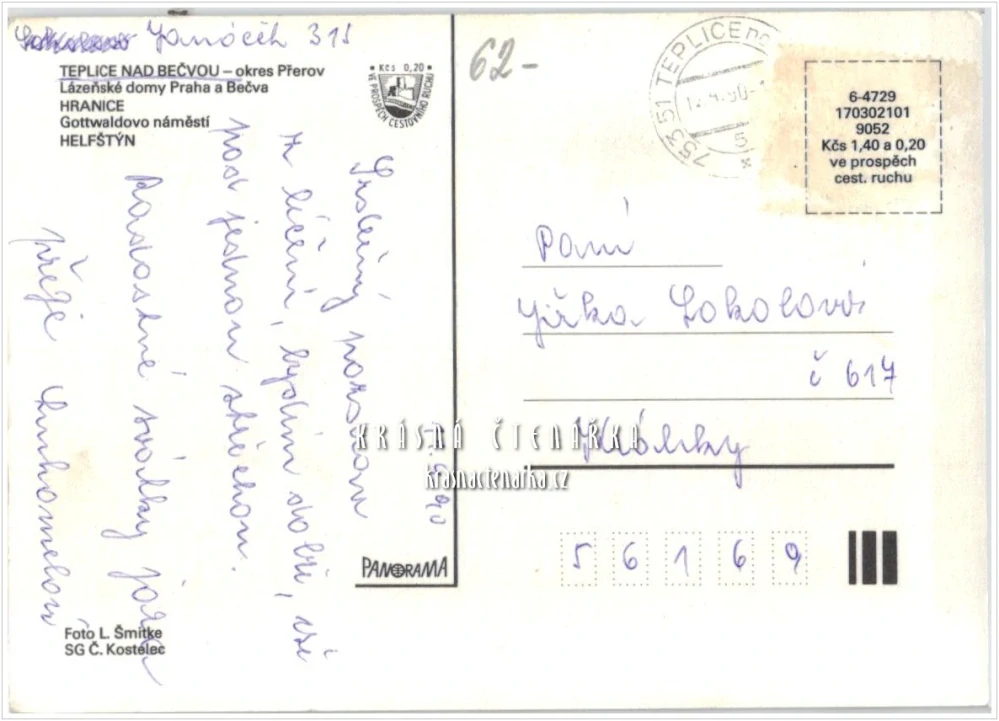 Janáček 315
TEPLICE NAD BEČVOU – okres Přerov
Lázeňské domy Praha a Bečva
HRANICE
Gottwaldovo náměstí
HELFŠTÝN
Kčs 0,20
VE PROSPĚCH CESTOVNÍHO RUCHU
62-
753 51 TEPLICE
5
6-4729
170302101
9052
Kčs 1,40 a 0,20
ve prospěch
cest. ruchu
5.4.90
Srdečný pozdrav
z léčení, bydlím dobře, vše
pod jednou střechou.
Radostné svátky jara
přeje
Paní
Jiřka Sokolová
č 617
Klášky
56169
KRÁSNÁ ČTENÁŘKA
krasnactenarka.cz
PANORAMA
Foto L. Šmitke
SG Č. Kostelec